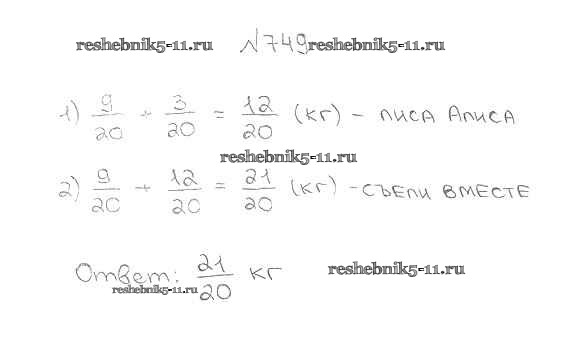 reshebnik5-11.ru №749 reshebnik5-11.ru
1) 9/20 + 3/20 = 12/20 (кг) - лиса Алиса
reshebnik5-11.ru
2) 9/20 + 12/20 = 21/20 (кг) - съели вместе
Ответ: 21/20 кг reshebnik5-11.ru
reshebnik5-11.ru